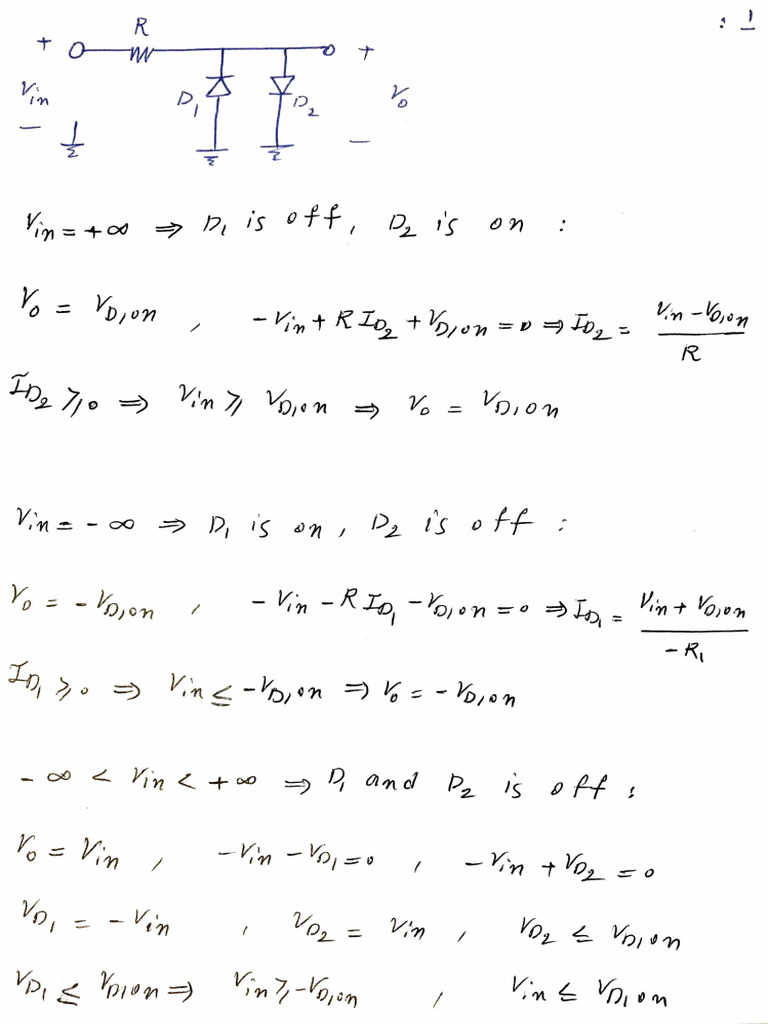 : 1
R
+ +
Vin D1 D2 Vo
− −
Vin = +∞ ⇒ D1 is off, D2 is on :
Vo = VD,on , −Vin + R ID2 + VD,on = 0 ⇒ ID2 = (Vin − VD,on) / R
ID2 ≥ 0 ⇒ Vin ≥ VD,on ⇒ Vo = VD,on
Vin = −∞ ⇒ D1 is on, D2 is off :
Vo = −VD,on , −Vin − R ID1 − VD,on = 0 ⇒ ID1 = (Vin + VD,on) / −R1
ID1 ≥ 0 ⇒ Vin ≤ −VD,on ⇒ Vo = −VD,on
−∞ < Vin < +∞ ⇒ D1 and D2 is off :
Vo = Vin , −Vin − VD1 = 0 , −Vin + VD2 = 0
VD1 = −Vin , VD2 = Vin , VD2 ≤ VD,on
VD1 ≤ VD,on ⇒ Vin ≥ −VD,on , Vin ≤ VD,on